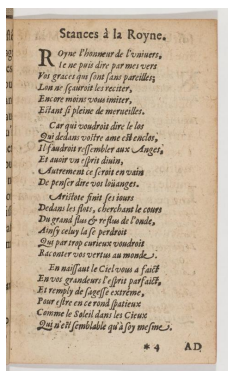 Stances à la Royne.
ROyne l'honneur de l'vniuers,
Ie ne puis dire par mes vers
Vos graces qui sont sans pareilles;
Lon ne sçauroit les reciter,
Encore moins vous imiter,
Estant si pleine de merueilles.
Car qui voudroit dire le los
Qui dedans vostre ame est enclos,
Il faudroit ressembler aux Anges,
Et auoir vn esprit diuin,
Autrement ce seroit en vain
De penser dire voz loüanges.
Aristote finit ses iours
Dedans les flots, cherchant le cours
Du grand flus & reflus de l'onde,
Ainsy celuy la se perdroit
Qui par trop curieux voudroit
Raconter vos vertus au monde.
En naissant le Ciel vous a faict
En voz grandeurs l'esprit parfaict,
Et remply de sagesse extreme,
Pour estre en ce rond spatieux
Comme le Soleil dans les Cieux
Qui n'est semblable qu'à soy mesme.
*4 AD